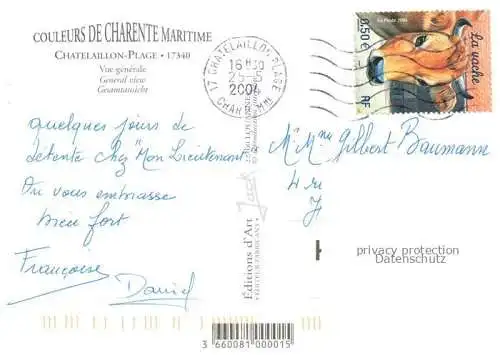 COULEURS DE CHARENTE MARITIME
CHATELAILLON-PLAGE • 17340
Vue générale
General view
Gesamtansicht
17 CHATELAILLON-PLAGE
16H30
25-5
2004
CHAR
La Poste 2004
0,50 €
La vache
RF
quelques jours de
détente chez "Mon Lieutenant"
On vous embrasse
bien fort
Françoise
Daniel
M. Mme Gilbert Baumann
4 ru
Jack
Éditions d'Art
privacy protection
Datenschutz
3 660081 000015